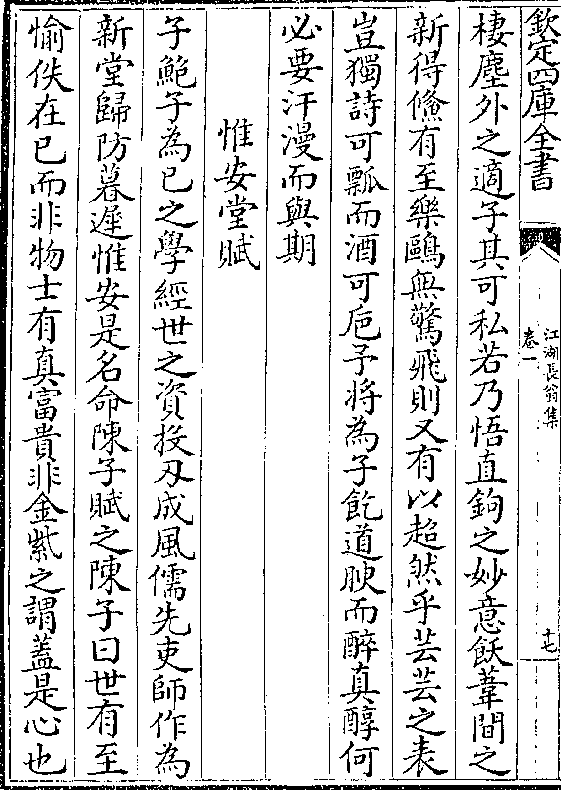 欽定四庫全書
江湖長翁集
卷一
十七
棲塵外之適子其可私若乃悟直鉤之妙意飫葦間之
新得鯈有至樂鷗無驚飛則又有以超然乎芸芸之表
豈獨詩可瓢而酒可巵予将為子飽道腴而醉真醇何
必要汗漫而與期
惟安堂賦
子鮑子為已之學經世之資投刃成風儒先吏師作為
新堂歸防暮遲惟安是名命陳子賦之陳子曰世有至
愉佚在已而非物士有真富貴非金紫之謂蓋是心也